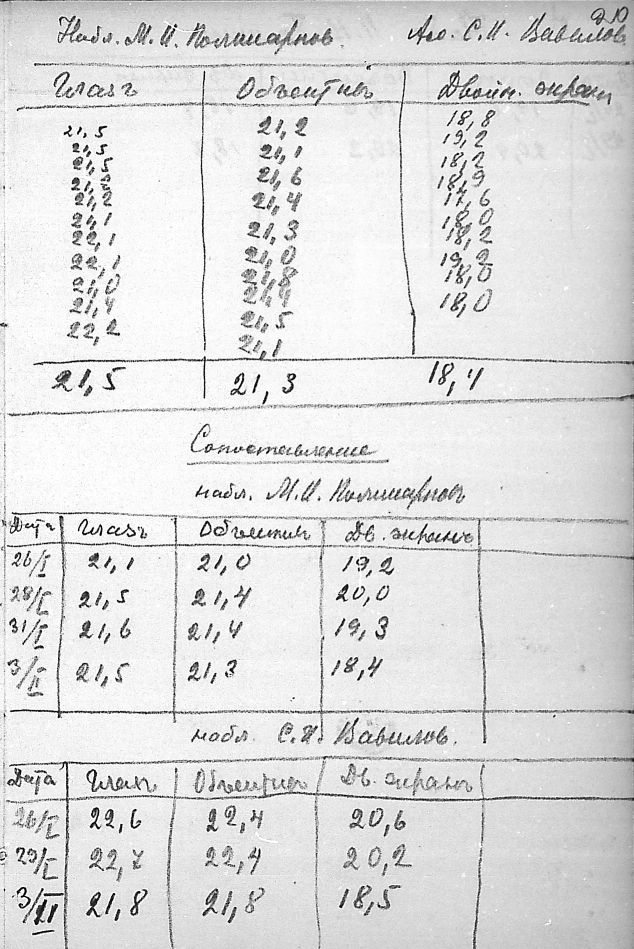 210
Набл. М. И. Поликарпов. Асс. С. И. Вавилов
Глазъ Объективъ Двойн. экранъ
21,5 21,2 18,8
21,5 21,1 19,2
21,5 21,6 18,2
21,2 21,4 18,9
21,2 21,3 17,6
21,1 21,0 18,0
22,1 21,8 18,2
22,1 21,4 19,2
21,0 21,5 18,0
21,4 21,1 18,0
22,2
21,5 21,3 18,4
Сопоставление
набл. М. И. Поликарповъ
Дата Глазъ Объективъ Дв. экранъ
26/I 21,1 21,0 19,2
28/I 21,5 21,4 20,0
31/I 21,6 21,4 19,3
3/II 21,5 21,3 18,4
набл. С. И. Вавилов.
Дата Глазъ Объективъ Дв. экранъ
26/I 22,6 22,4 20,6
29/I 22,7 22,4 20,2
3/II 21,8 21,8 18,5